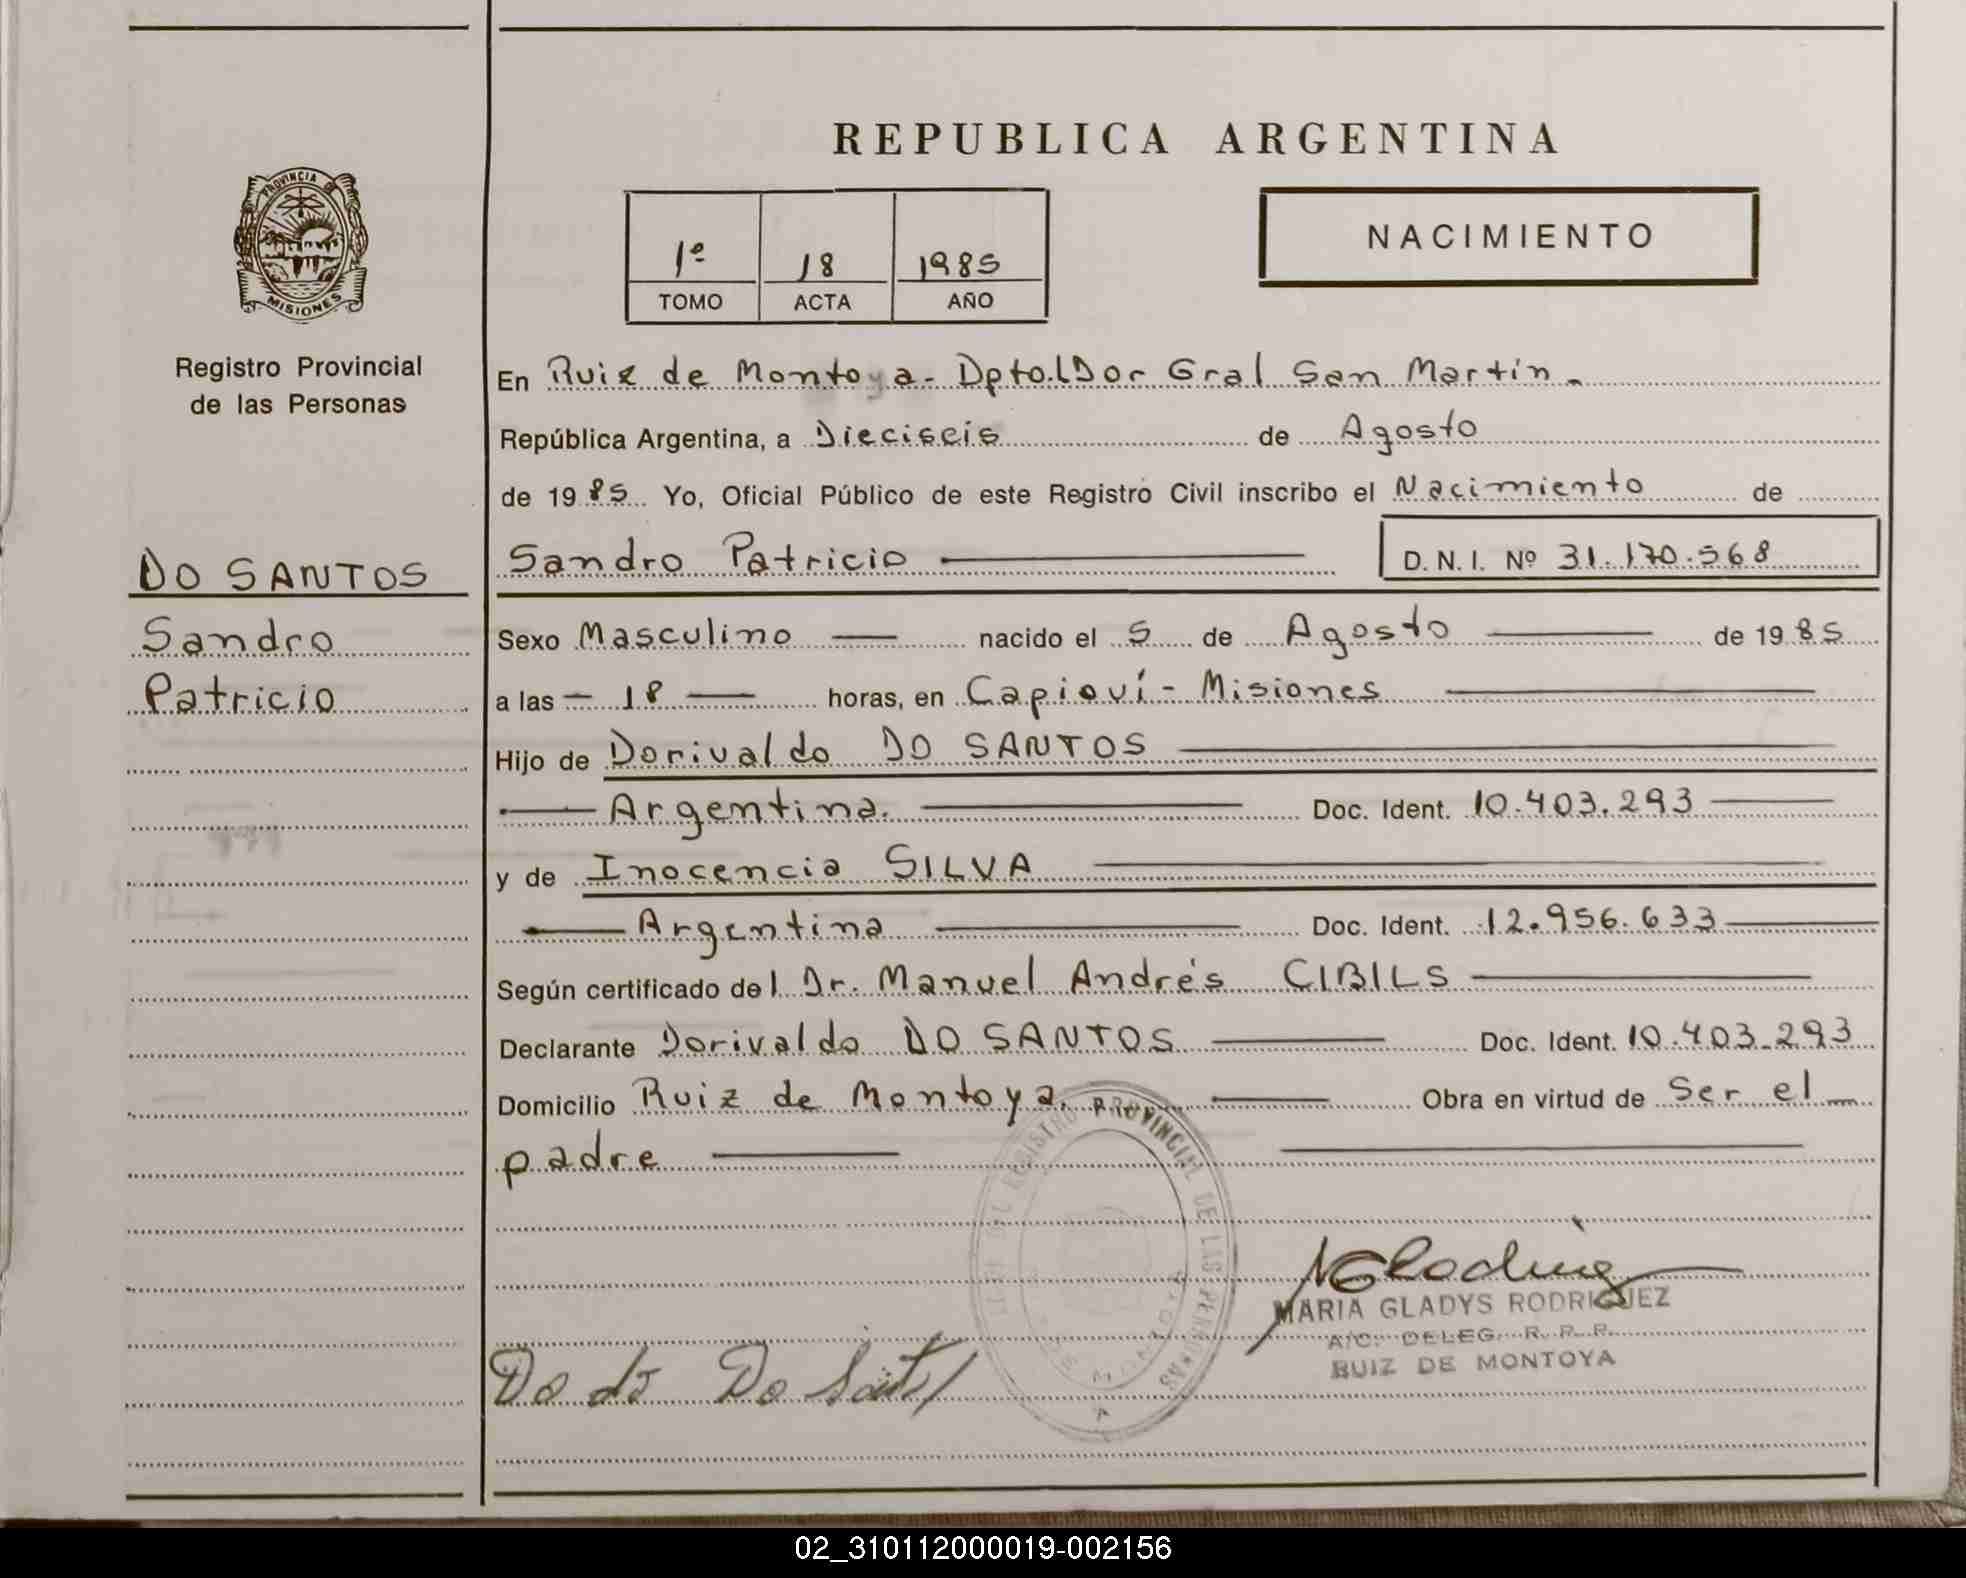 REPUBLICA ARGENTINA
PROVINCIA DE
MISIONES
Registro Provincial
de las Personas
1º 18 1985
TOMO ACTA AÑO
NACIMIENTO
En Ruiz de Montoya - Dpto. LDor Gral San Martín.
República Argentina, a Dieciseis de Agosto
de 1985 Yo, Oficial Público de este Registro Civil inscribo el Nacimiento de
Sandro Patricio D.N.I. Nº 31.170.568
DO SANTOS
Sandro
Patricio
Sexo Masculino nacido el 5 de Agosto de 1985
a las 18 horas, en Capioví - Misiones
Hijo de Dorivaldo DO SANTOS
Argentina. Doc. Ident. 10.403.293
y de Inocencia SILVA
Argentina Doc. Ident. 12.956.633
Según certificado del Dr. Manuel Andrés CIBILS
Declarante Dorivaldo DO SANTOS Doc. Ident. 10.403.293
Domicilio Ruiz de Montoya. Obra en virtud de Ser el
padre
REGISTRO PROVINCIAL DE LAS PERSONAS
MARIA GLADYS RODRIGUEZ
A/C. DELEG. R. P. P.
RUIZ DE MONTOYA
02_310112000019-002156